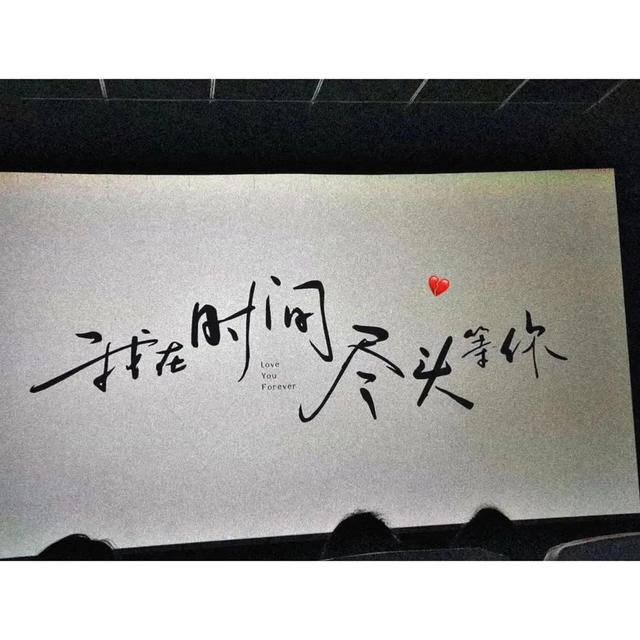 我在时间尽头等你
Love
You
Forever